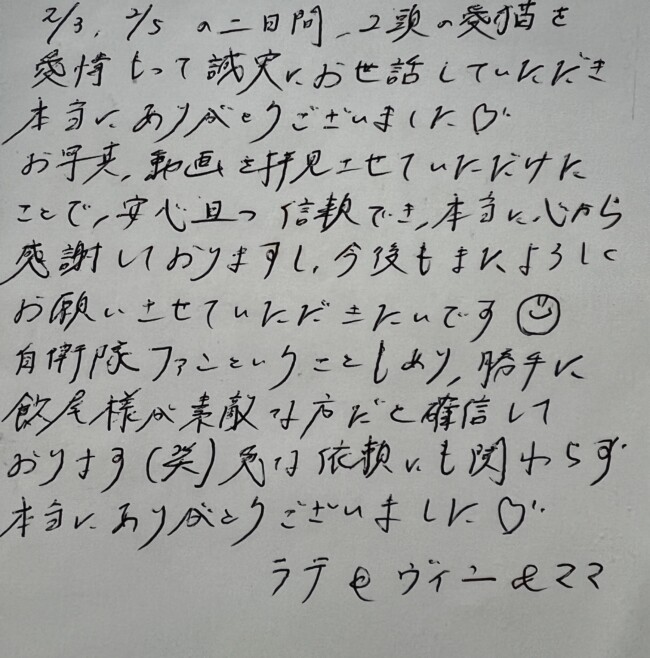 2/3, 2/5 の二日間、2頭の愛猫を
愛情もって誠実にお世話していただき
本当にありがとうございました♡
お写真、動画を拝見させていただけた
ことで、安心且つ信頼でき、本当に心から
感謝しておりますし、今後もまた、よろしく
お願いさせていただきたいです☺
自衛隊ファンということもあり、勝手に
飯尾様が素敵な方だと確信して
おります(笑)急な依頼にも関わらず
本当にありがとうございました♡
ラテ&ヴィニ&ママ